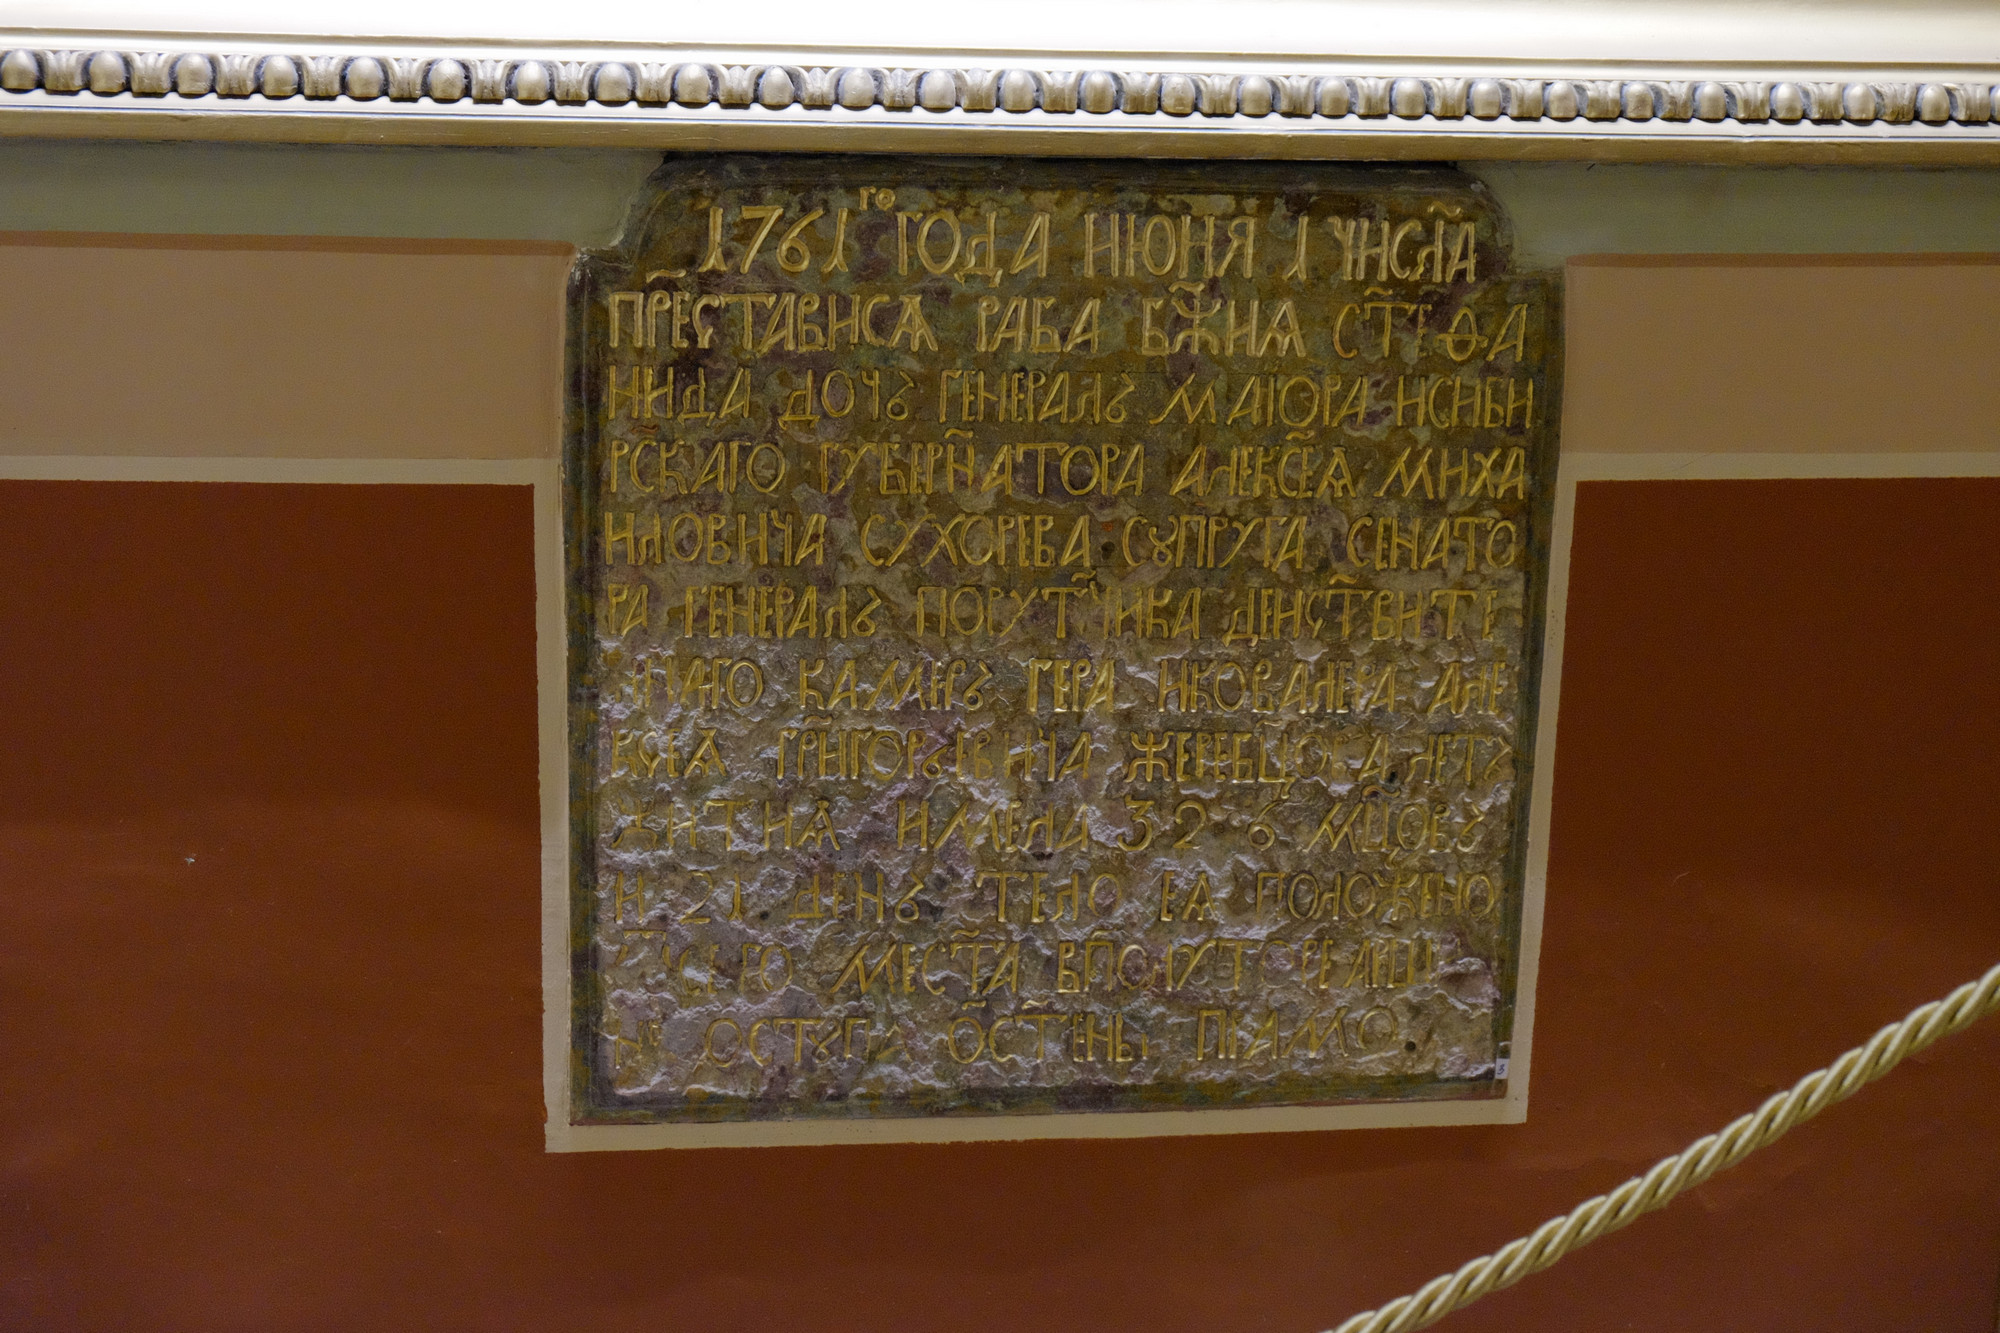 1761го ГОДА ИЮНЯ 1 ЧИСЛА
ПРЕСТАВИСѦ РАБА БЖИѦ СТЕѲА
НИДА ДОЧЬ ГЕНЕРАЛЪ МАІОРА ИСИБИ
РСКАГО ГУБЕРНАТОРА АЛЕКСЕѦ МИХА
ИЛОВИЧА СУХОРЕВА СꙋПРУГА СЕНАТО
РА ГЕНЕРАЛЪ ПОРУТЧИКА ДЕИСТВИТЕ
ЛНАГО КАМЕРЪ ГЕРА ИКОВАЛЕРА АЛЕ
КСЕѦ ГРИГОРЬЕВИЧА ЖЕРЕБЦОВА ЛЕТЪ
ЖИТИѦ ИМЕЛА 32 6 МЦОВЪ
И 21 ДЕНЬ ТЕЛО ЕѦ ПОЛОЖЕНО
СЕГО МЕСТА ВПОЛУТОРЕ АРШИ
НЕ ОСТꙋПА ОСТЕНЫ ПІАМО
3